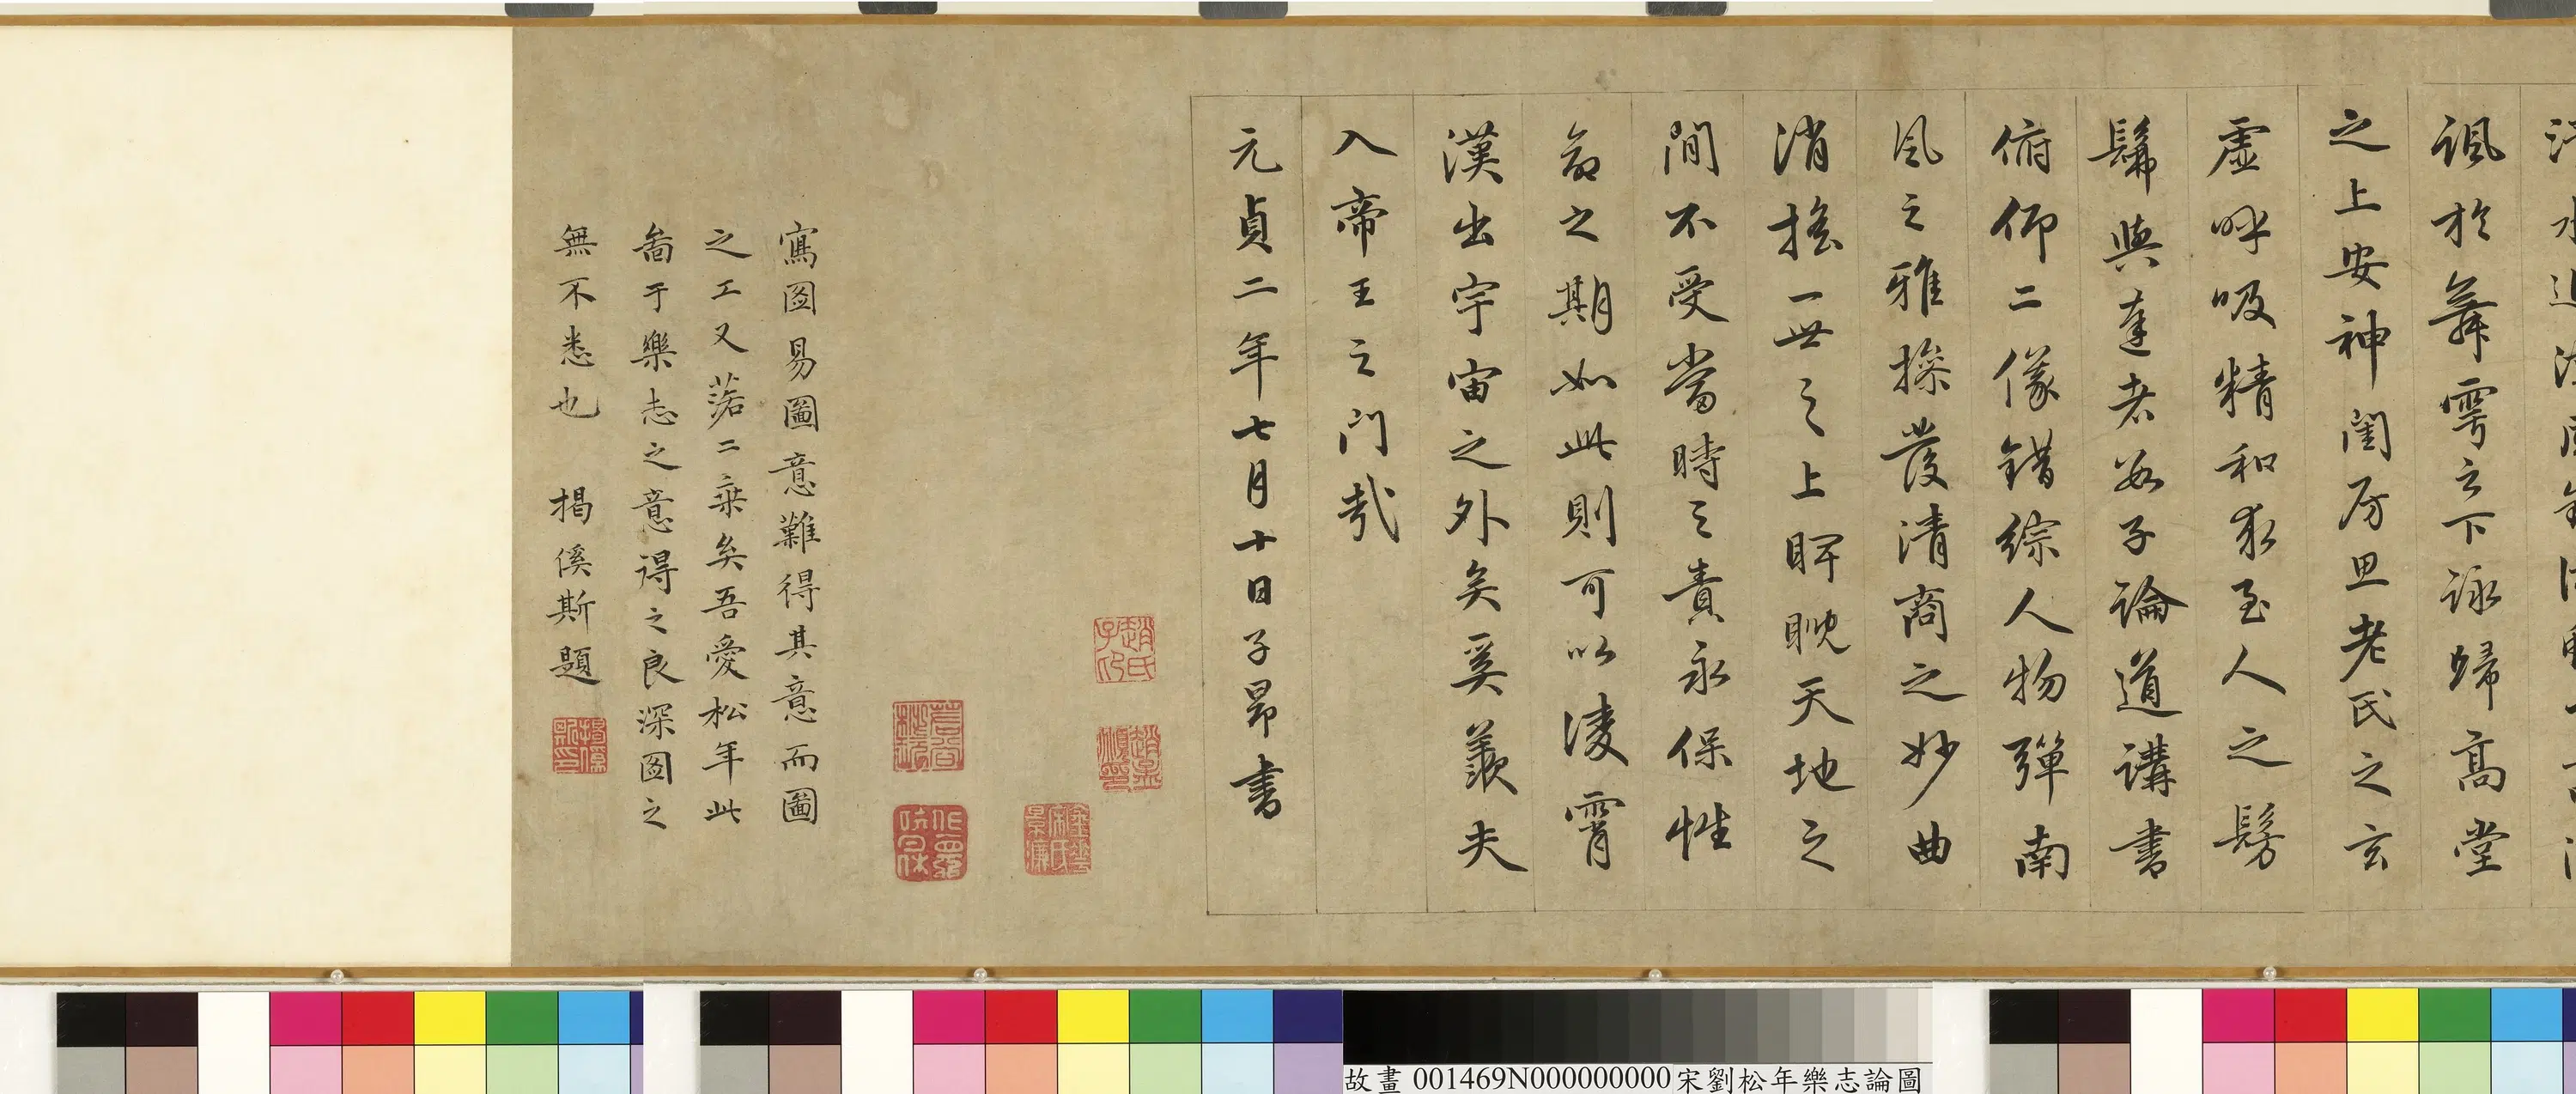 諷於舞雩之下詠歸高堂
之上安神閨房思老氏之玄
虛呼吸精和求至人之髣
髴與達者數子論道講書
俯仰二儀錯綜人物彈南
風之雅操發清商之妙曲
消搖一世之上睥睨天地之
間不受當時之責永保性
命之期如此則可以淩霄
漢出宇宙之外矣奚羨夫
入帝王之門哉
元貞二年七月十日子昂書
趙氏子昂
金華宋氏景濂
寫图易圖意難得其意而圖
之工又落二乘矣吾愛松年此
啚于樂志之意得之良深图之
無不悉也 揭傒斯題
揭傒斯印
故畫 001469N000000000 宋劉松年樂志論圖